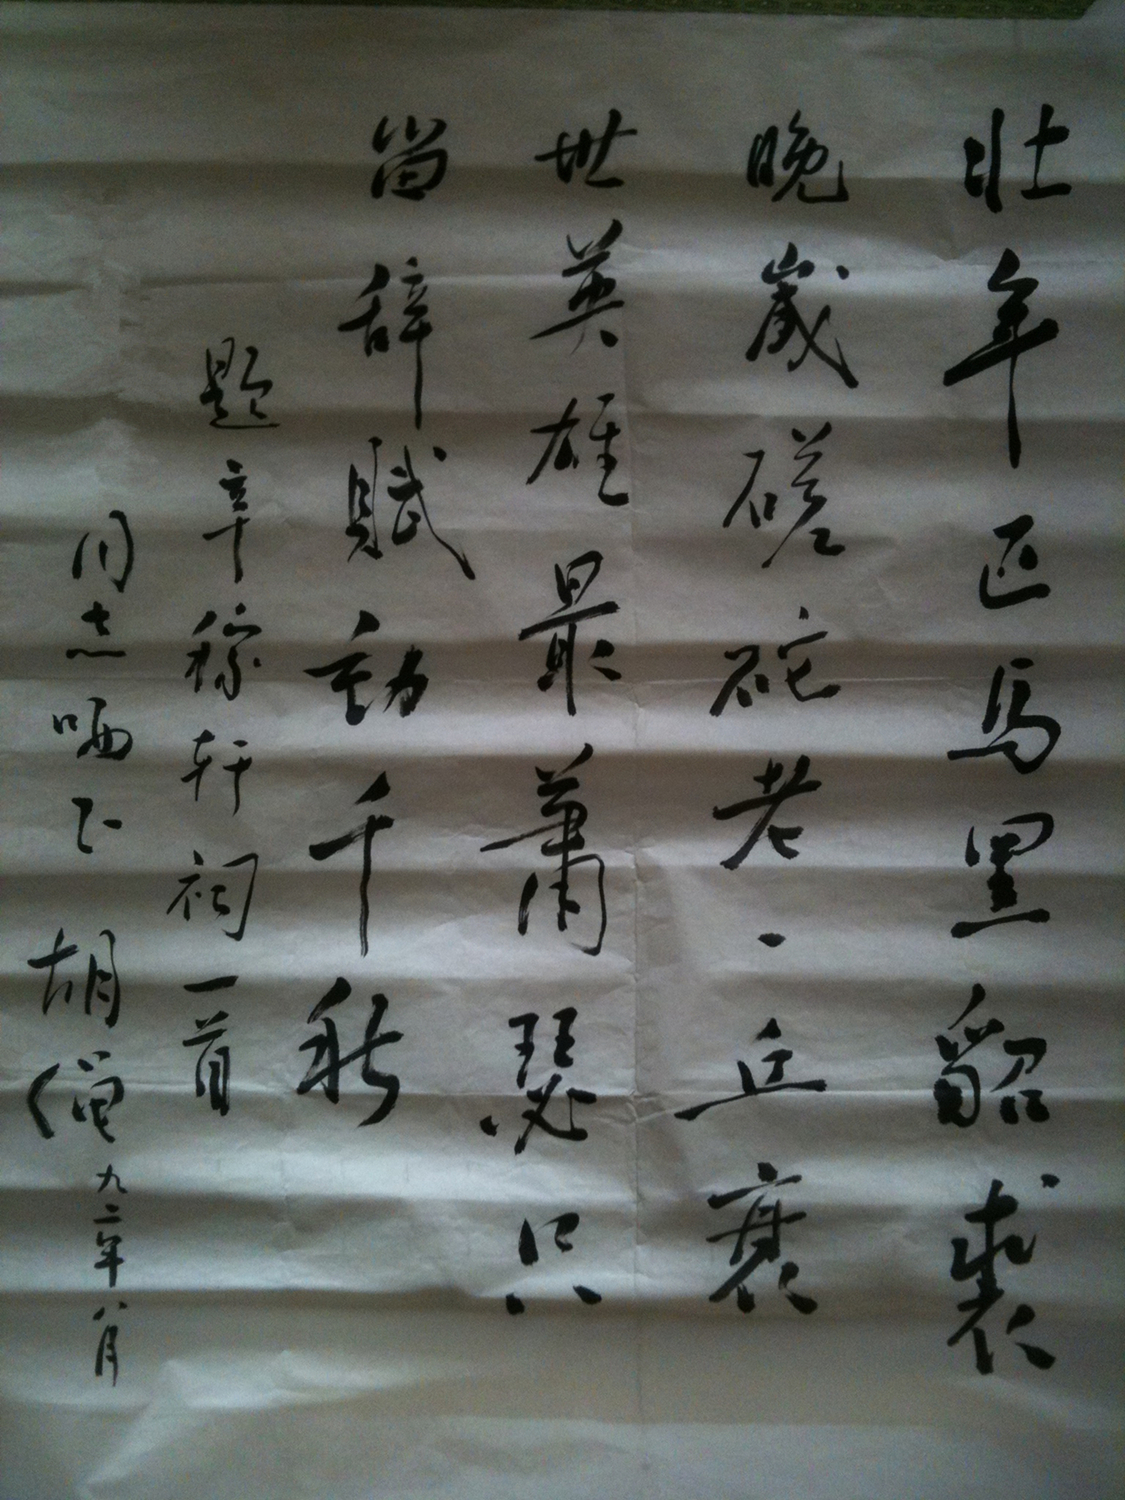 壮年匹马黑貂裘
晚歲磋砣老一丘衰
世英雄最蕭瑟只
留辞賦動千秋
题辛稼轩祠一首
同志哂正 胡绳 九二年八月